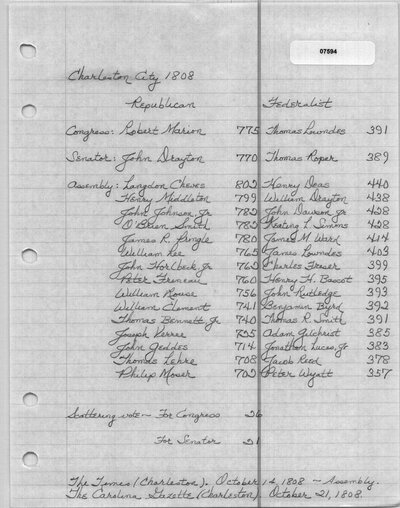 07594
Charleston City 1808
Republican Federalist
Congress: Robert Marion 775 Thomas Lowndes 391
Senator: John Drayton 770 Thomas Roper 389
Assembly: Langdon Cheves 802 Henry Deas 440
Henry Middleton 799 William Drayton 438
John Johnson Jr 782 John Dawson Jr 428
O'Brien Smith 782 Keating L. Simons 428
James R. Pringle 780 James M. Ward 414
William Lee 765 James Lowndes 403
John Horlbeck Jr 762 Charles Fraser 399
Peter Freneau 760 Henry H. Bacot 395
William Rouse 756 John Rutledge 393
William Clement 741 Benjamin Boyd 392
Thomas Bennett Jr 740 Thomas R. Smith 391
Joseph Kerr 725 Adam Gilchrist 385
John Geddes 714 Jonathan Lucas, Jr 383
Thomas Lehre 708 Jacob Reed 378
Philip Moser 702 Peter Wyatt 357
Scattering vote - For Congress 26
For Senator 21
The Times (Charleston). October 14, 1808 - Assembly.
The Carolina Gazette (Charleston). October 21, 1808.